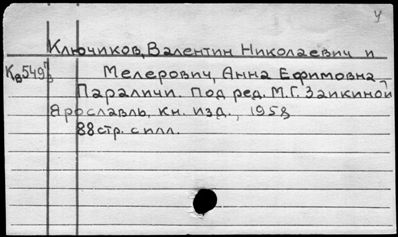 у
Ключиков, Валентин Николаевич и
Мелерович, Анна Ефимовна
Параличи. Под ред. М.Г. Заикиной
Ярославль, кн. изд., 1958
88 стр. с илл.